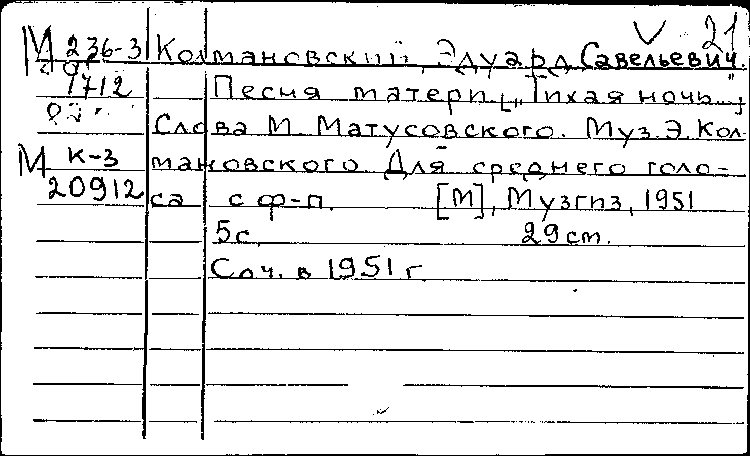 21
М 236-3 Колмановский, Эдуард Савельевич.
1712 Песня матери ["Тихая ночь..."]
Слова М. Матусовского. Муз. Э. Кол-
М К-3 мановского. Для среднего голо-
20912 са с ф-п. [М], Музгиз, 1951
5с. 29 cm.
Соч. в 1951 г